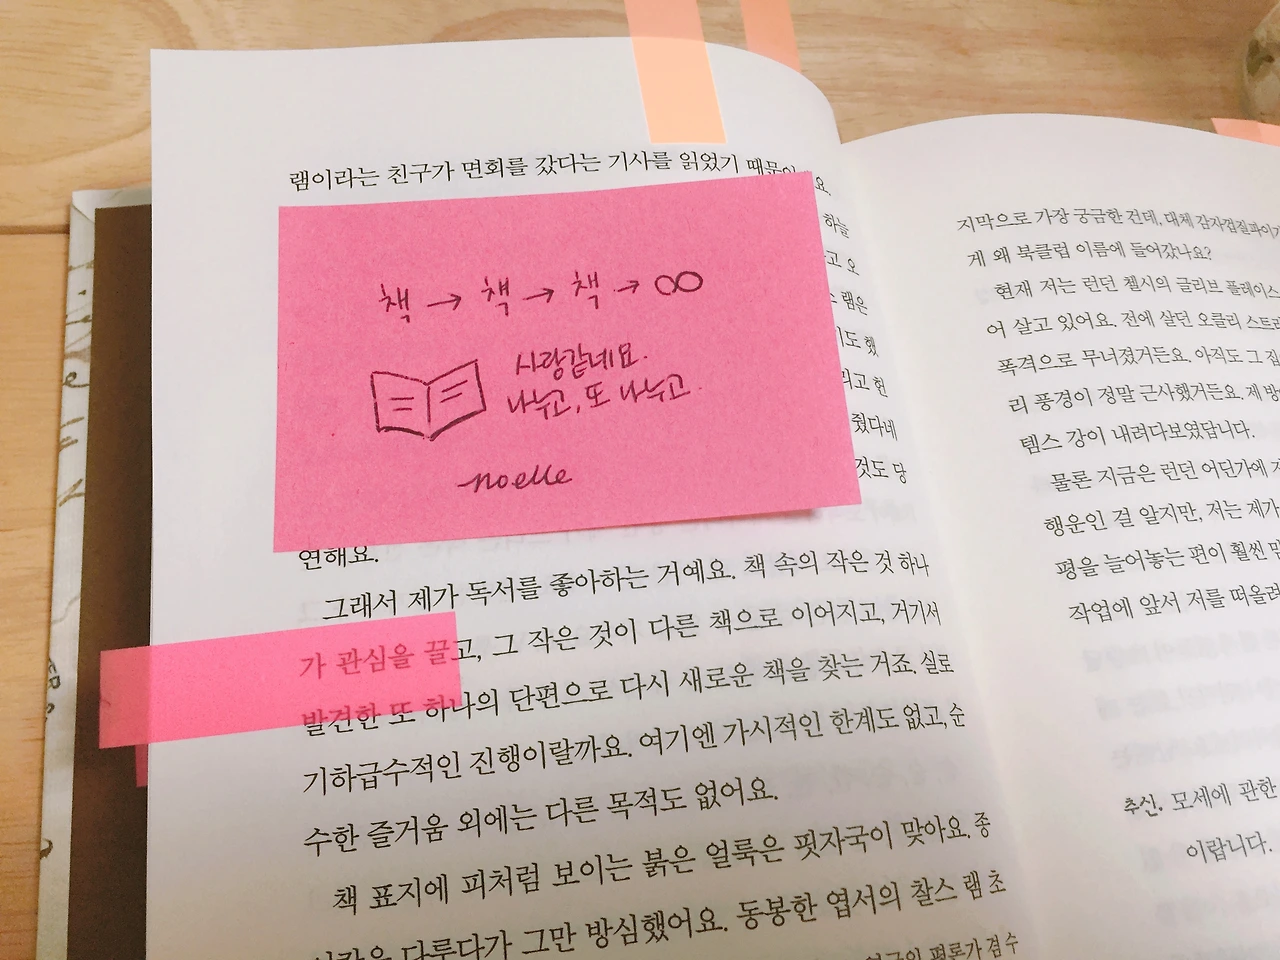 램이라는 친구가 면회를 갔다는 기사를 읽었기 때문이
요.
하늘
고 오
램은
기도 했
리고 헌
줬다네
것도 당
책 → 책 → 책 → ∞
사랑같네요.
나누고, 또 나누고.
noelle
연해요.
그래서 제가 독서를 좋아하는 거예요. 책 속의 작은 것 하나
가 관심을 끌고, 그 작은 것이 다른 책으로 이어지고, 거기서
발견한 또 하나의 단편으로 다시 새로운 책을 찾는 거죠. 실로
기하급수적인 진행이랄까요. 여기엔 가시적인 한계도 없고, 순
수한 즐거움 외에는 다른 목적도 없어요.
책 표지에 피처럼 보이는 붉은 얼룩은 핏자국이 맞아요. 종
다루다가 그만 방심했어요. 동봉한 엽서의 찰스 램 초
평론가 겸 수
지막으로 가장 궁금한 건데, 대체 감자껍질파이가
게 왜 북클럽 이름에 들어갔나요?
현재 저는 런던 첼시의 글리브 플레이스
어 살고 있어요. 전에 살던 오클리 스트리
폭격으로 무너졌거든요. 아직도 그 집
리 풍경이 정말 근사했거든요. 제 방
템스 강이 내려다보였답니다.
물론 지금은 런던 어딘가에
행운인 걸 알지만, 저는 제가
평을 늘어놓는 편이 훨씬
작업에 앞서 저를 떠올려
추신. 모세에 관한
이랍니다.